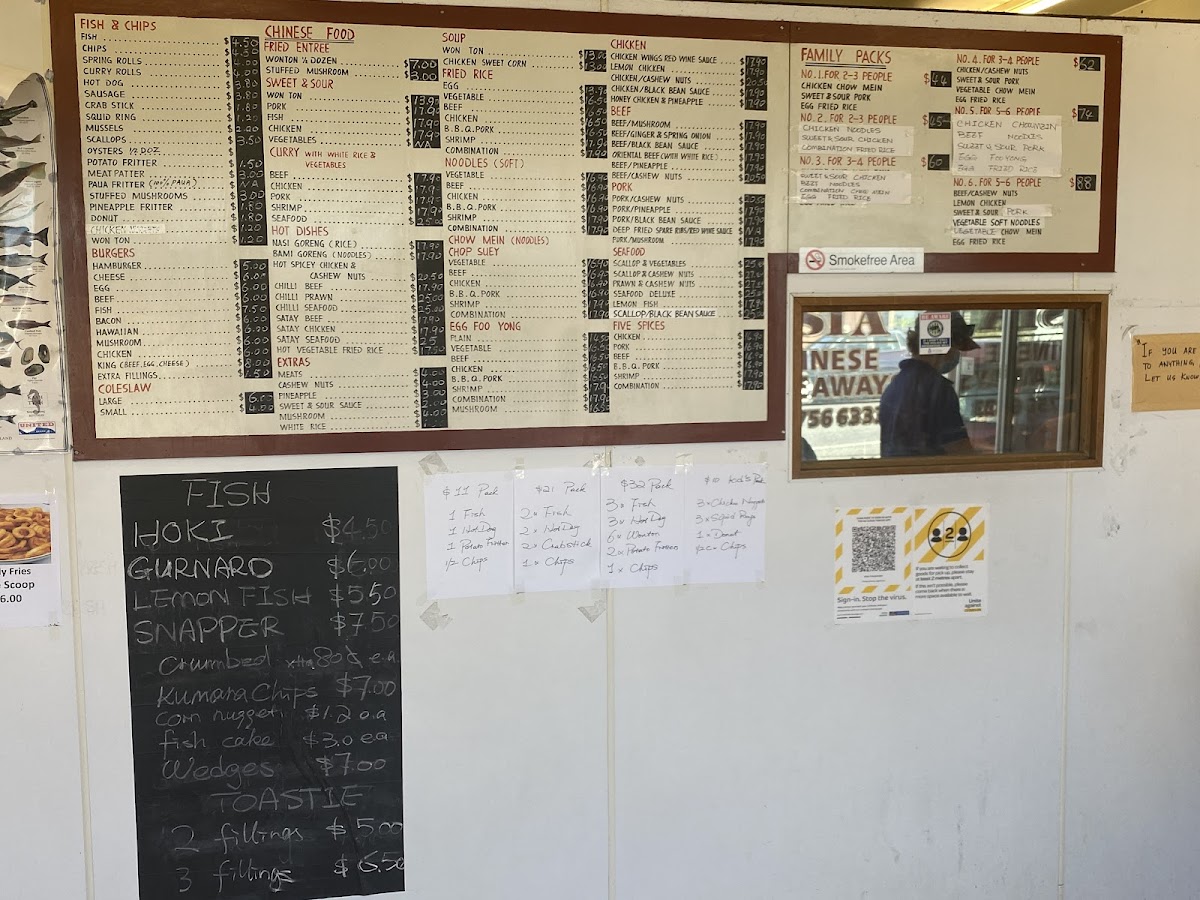 FISH & CHIPS
FISH $4.50
CHIPS
SPRING ROLLS
CURRY ROLLS $4.00
HOT DOG $3.80
SAUSAGE
CRAB STICK $1.80
SQUID RING $1.20
MUSSELS
SCALLOPS $3.50
OYSTERS ½ DOZ
POTATO FRITTER
MEAT PATTER $3.00
PAUA FRITTER N/A
STUFFED MUSHROOMS $3.00
PINEAPPLE FRITTER $1.80
DONUT $1.80
CHICKEN NUGGETS $1.20
WON TON $1.20
BURGERS
HAMBURGER $5.00
CHEESE $6.00
EGG $6.00
BEEF $6.00
FISH $7.50
BACON $6.00
HAWAIIAN $6.00
MUSHROOM $6.00
CHICKEN $6.00
KING (BEEF, EGG, CHEESE) $8.00
EXTRA FILLINGS $1.50
COLESLAW
LARGE $6.00
SMALL $4.00
CHINESE FOOD
FRIED ENTREE
WONTON ½ DOZEN $7.00
STUFFED MUSHROOM $3.00
SWEET & SOUR
WON TON $13.90
PORK $17.90
FISH
CHICKEN $17.90
VEGETABLES N/A
CURRY WITH WHITE RICE & VEGETABLES
BEEF $17.90
CHICKEN $17.90
PORK $17.90
SHRIMP $17.90
SEAFOOD
HOT DISHES
NASI GORENG (RICE) $17.90
BAMI GORENG (NOODLES) $17.90
HOT SPICEY CHICKEN &
CASHEW NUTS $20.50
CHILLI BEEF $17.90
CHILLI PRAWN $25.00
CHILLI SEAFOOD $25.00
SATAY BEEF $17.90
SATAY CHICKEN $17.90
SATAY SEAFOOD $25
HOT VEGETABLE FRIED RICE $17.50
EXTRAS
MEATS $4.00
CASHEW NUTS $4.00
PINEAPPLE $3.00
SWEET & SOUR SAUCE
MUSHROOM $4.00
WHITE RICE
SOUP
WON TON $13.00
CHICKEN SWEET CORN $13.00
FRIED RICE
EGG
VEGETABLE
BEEF $16.50
CHICKEN $16.50
B.B.Q. PORK $16.50
SHRIMP
COMBINATION $17.90
NOODLES (SOFT)
VEGETABLE
BEEF $16.90
CHICKEN $16.90
B.B.Q. PORK $16.90
SHRIMP
COMBINATION $17.90
CHOW MEIN (NOODLES)
CHOP SUEY
VEGETABLE $16.90
BEEF $16.90
CHICKEN $16.90
B.B.Q. PORK $16.90
SHRIMP
COMBINATION $17.90
EGG FOO YONG
PLAIN
VEGETABLE
BEEF $16.50
CHICKEN $16.50
B.B.Q. PORK
SHRIMP $17.90
COMBINATION $17.90
MUSHROOM $16.50
CHICKEN
CHICKEN WINGS RED WINE SAUCE $17.90
LEMON CHICKEN $17.90
CHICKEN/CASHEW NUTS $20.50
CHICKEN/BLACK BEAN SAUCE $17.90
HONEY CHICKEN & PINEAPPLE $17.90
BEEF
BEEF/MUSHROOM $17.90
BEEF/GINGER & SPRING ONION $17.90
BEEF/BLACK BEAN SAUCE $17.90
ORIENTAL BEEF (WITH WHITE RICE) $17.90
BEEF/PINEAPPLE $17.90
BEEF/CASHEW NUTS $20.50
PORK
PORK/CASHEW NUTS $20.50
PORK/PINEAPPLE $17.90
PORK/BLACK BEAN SAUCE $17.90
DEEP FRIED SPARE RIBS/RED WINE SAUCE N/A
PORK/MUSHROOM $17.90
SEAFOOD
SCALLOP & VEGETABLES
SCALLOP & CASHEW NUTS
PRAWN & CASHEW NUTS
SEAFOOD DELUXE
LEMON FISH $17.90
SCALLOP/BLACK BEAN SAUCE
FIVE SPICES
CHICKEN
PORK
BEEF
B.B.Q. PORK
SHRIMP $17.90
COMBINATION $17.90
FAMILY PACKS
NO. 1. FOR 2-3 PEOPLE $44
CHICKEN CHOW MEIN
SWEET & SOUR PORK
EGG FRIED RICE
NO. 2. FOR 2-3 PEOPLE $45
CHICKEN NOODLES
SWEET & SOUR CHICKEN
COMBINATION FRIED RICE
NO. 3. FOR 3-4 PEOPLE $60
SWEET & SOUR CHICKEN
BEEF NOODLES
COMBINATION CHOW MEIN
EGG FRIED RICE
NO. 4. FOR 3-4 PEOPLE $62
CHICKEN/CASHEW NUTS
SWEET & SOUR PORK
VEGETABLE CHOW MEIN
EGG FRIED RICE
NO. 5. FOR 5-6 PEOPLE $74
CHICKEN CHOWMEIN
BEEF NOODLES
SWEET & SOUR PORK
EGG FOOYONG
EGG FRIED RICE
NO. 6. FOR 5-6 PEOPLE $88
BEEF/CASHEW NUTS
LEMON CHICKEN
SWEET & SOUR PORK
VEGETABLE SOFT NOODLES
VEGETABLE CHOW MEIN
EGG FRIED RICE
Smokefree Area
SIA
INESE
AWAY
756 6333
IF YOU ARE
TO ANYTHING,
LET US KNOW
UNITED
ly Fries
Scoop
6.00
FISH
HOKI $4.50
GURNARD $6.00
LEMON FISH $5.50
SNAPPER $7.50
Crumbed xtra 80¢ ea
Kumara Chips $7.00
corn nugget $1.20 ea
fish cake $3.0 ea
Wedges $7.00
TOASTIE
2 fillings $5.00
3 fillings $6.50
$11 Pack
1 Fish
1 Hot Dog
1 Potato Fritter
1/2 Chips
$21 Pack
2x Fish
2x Hot Dog
2x Crabstick
1x Chips
$32 Pack
3x Fish
3x Hot Dog
6x Wonton
2x Potato Fritters
1x Chips
$10 Kid's Pack
3x Chicken Nuggets
3x Squid Rings
1x Donut
Chips
Sign-in. Stop the virus.
2
If you are waiting to collect
goods for pick up, please stay
at least 2 metres apart.
If this isn't possible, please
come back when there is
more space available to wait.
Unite
against